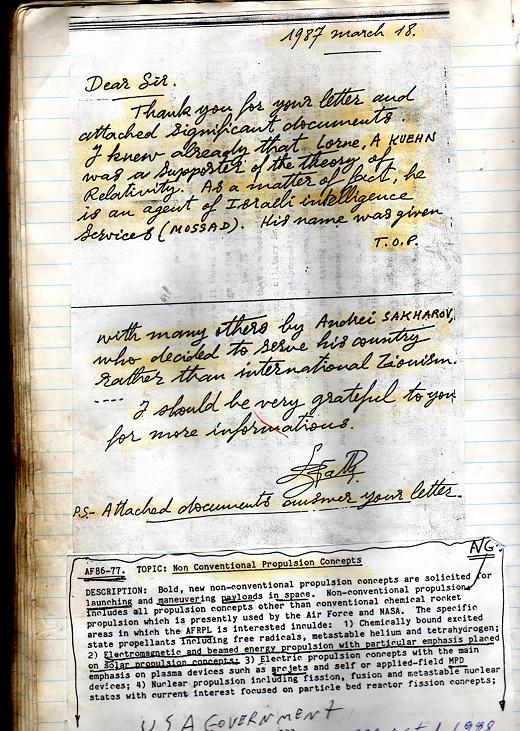 1987 march 18.
Dear Sir.
Thank you for your letter and
attached significant documents.
I knew already that Lorne, A KUEHN
was a supporter of the theory of
Relativity. As a matter of fact, he
is an agent of Israeli intelligence
Services (MOSSAD). His name was given
T.O.P.
with many others by Andrei SAKHAROV,
who decided to serve his country
rather than international Zionism.
----
I should be very grateful to you
for more informations.
P.S.- Attached documents answer your letter.
NG.
AF86-77. TOPIC: Non Conventional Propulsion Concepts
DESCRIPTION: Bold, new non-conventional propulsion concepts are solicited for
launching and maneuvering payloads in space. Non-conventional propulsion
includes all propulsion concepts other than conventional chemical rocket
propulsion which is presently used by the Air Force and NASA. The specific
areas in which the AFRPL is interested inculde: 1) Chemically bound excited
state propellants including free radicals, metastable helium and tetrahydrogen;
2) Electromagnetic and beamed energy propulsion with particular emphasis placed
on solar propulsion concepts; 3) Electric propulsion concepts with the main
emphasis on plasma devices such as arcjets and self or applied-field MPD
devices; 4) Nuclear propulsion including fission, fusion and metastable nuclear
states with current interest focused on particle bed reactor fission concepts;
USA GOVERNMENT
1988